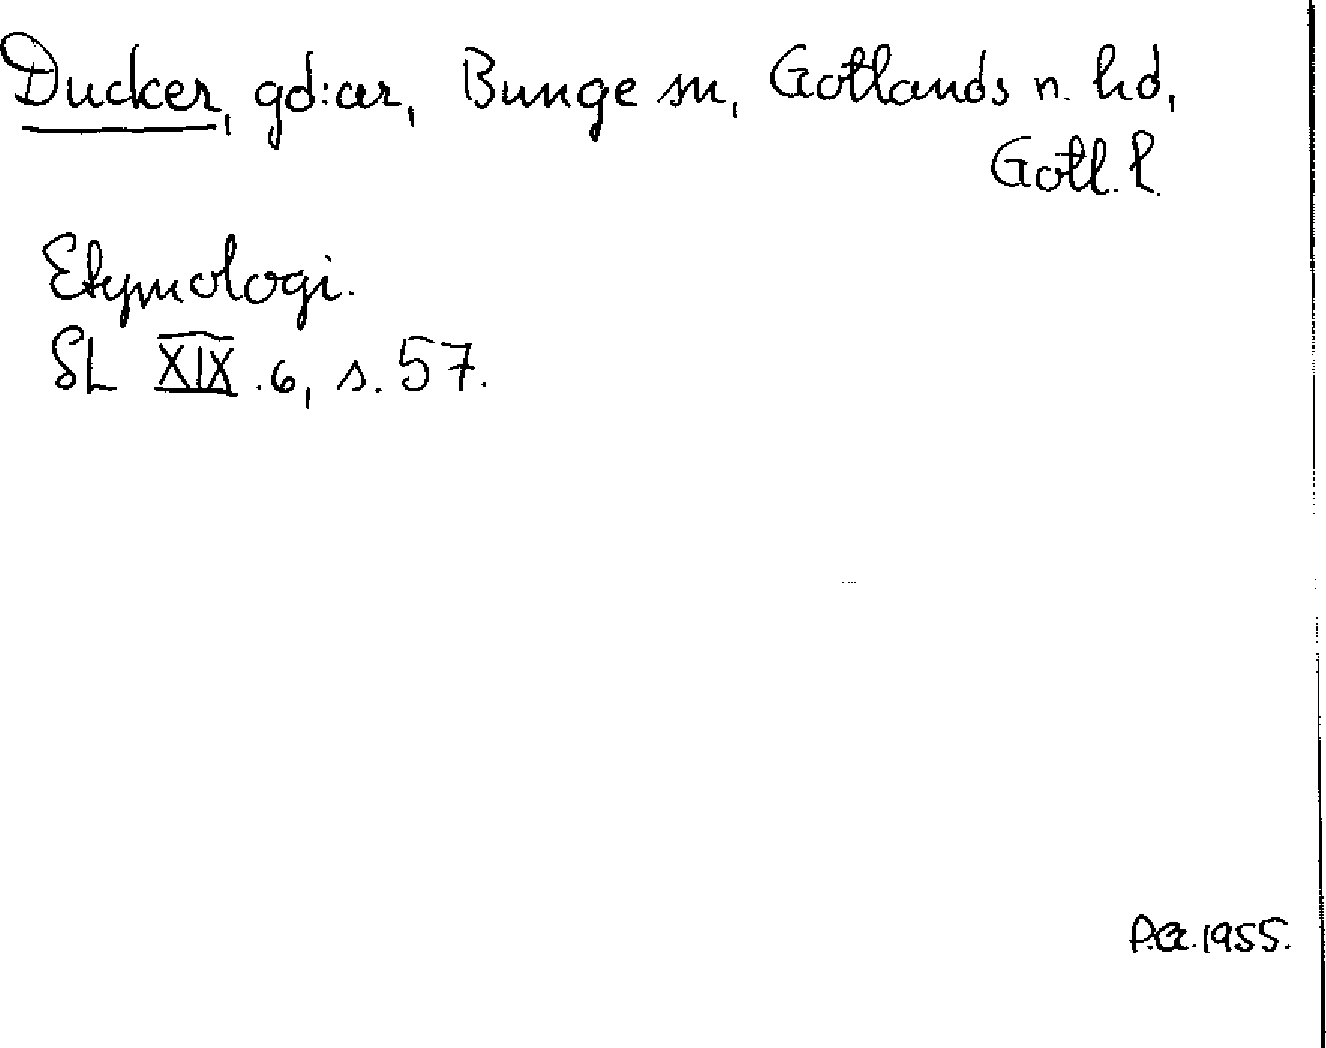 Ducker, gd:ar, Bunge sn, Gotlands n. hd,
Gotl. l.
Etymologi.
SL XIX.6, s. 57.
P.A. 1955.